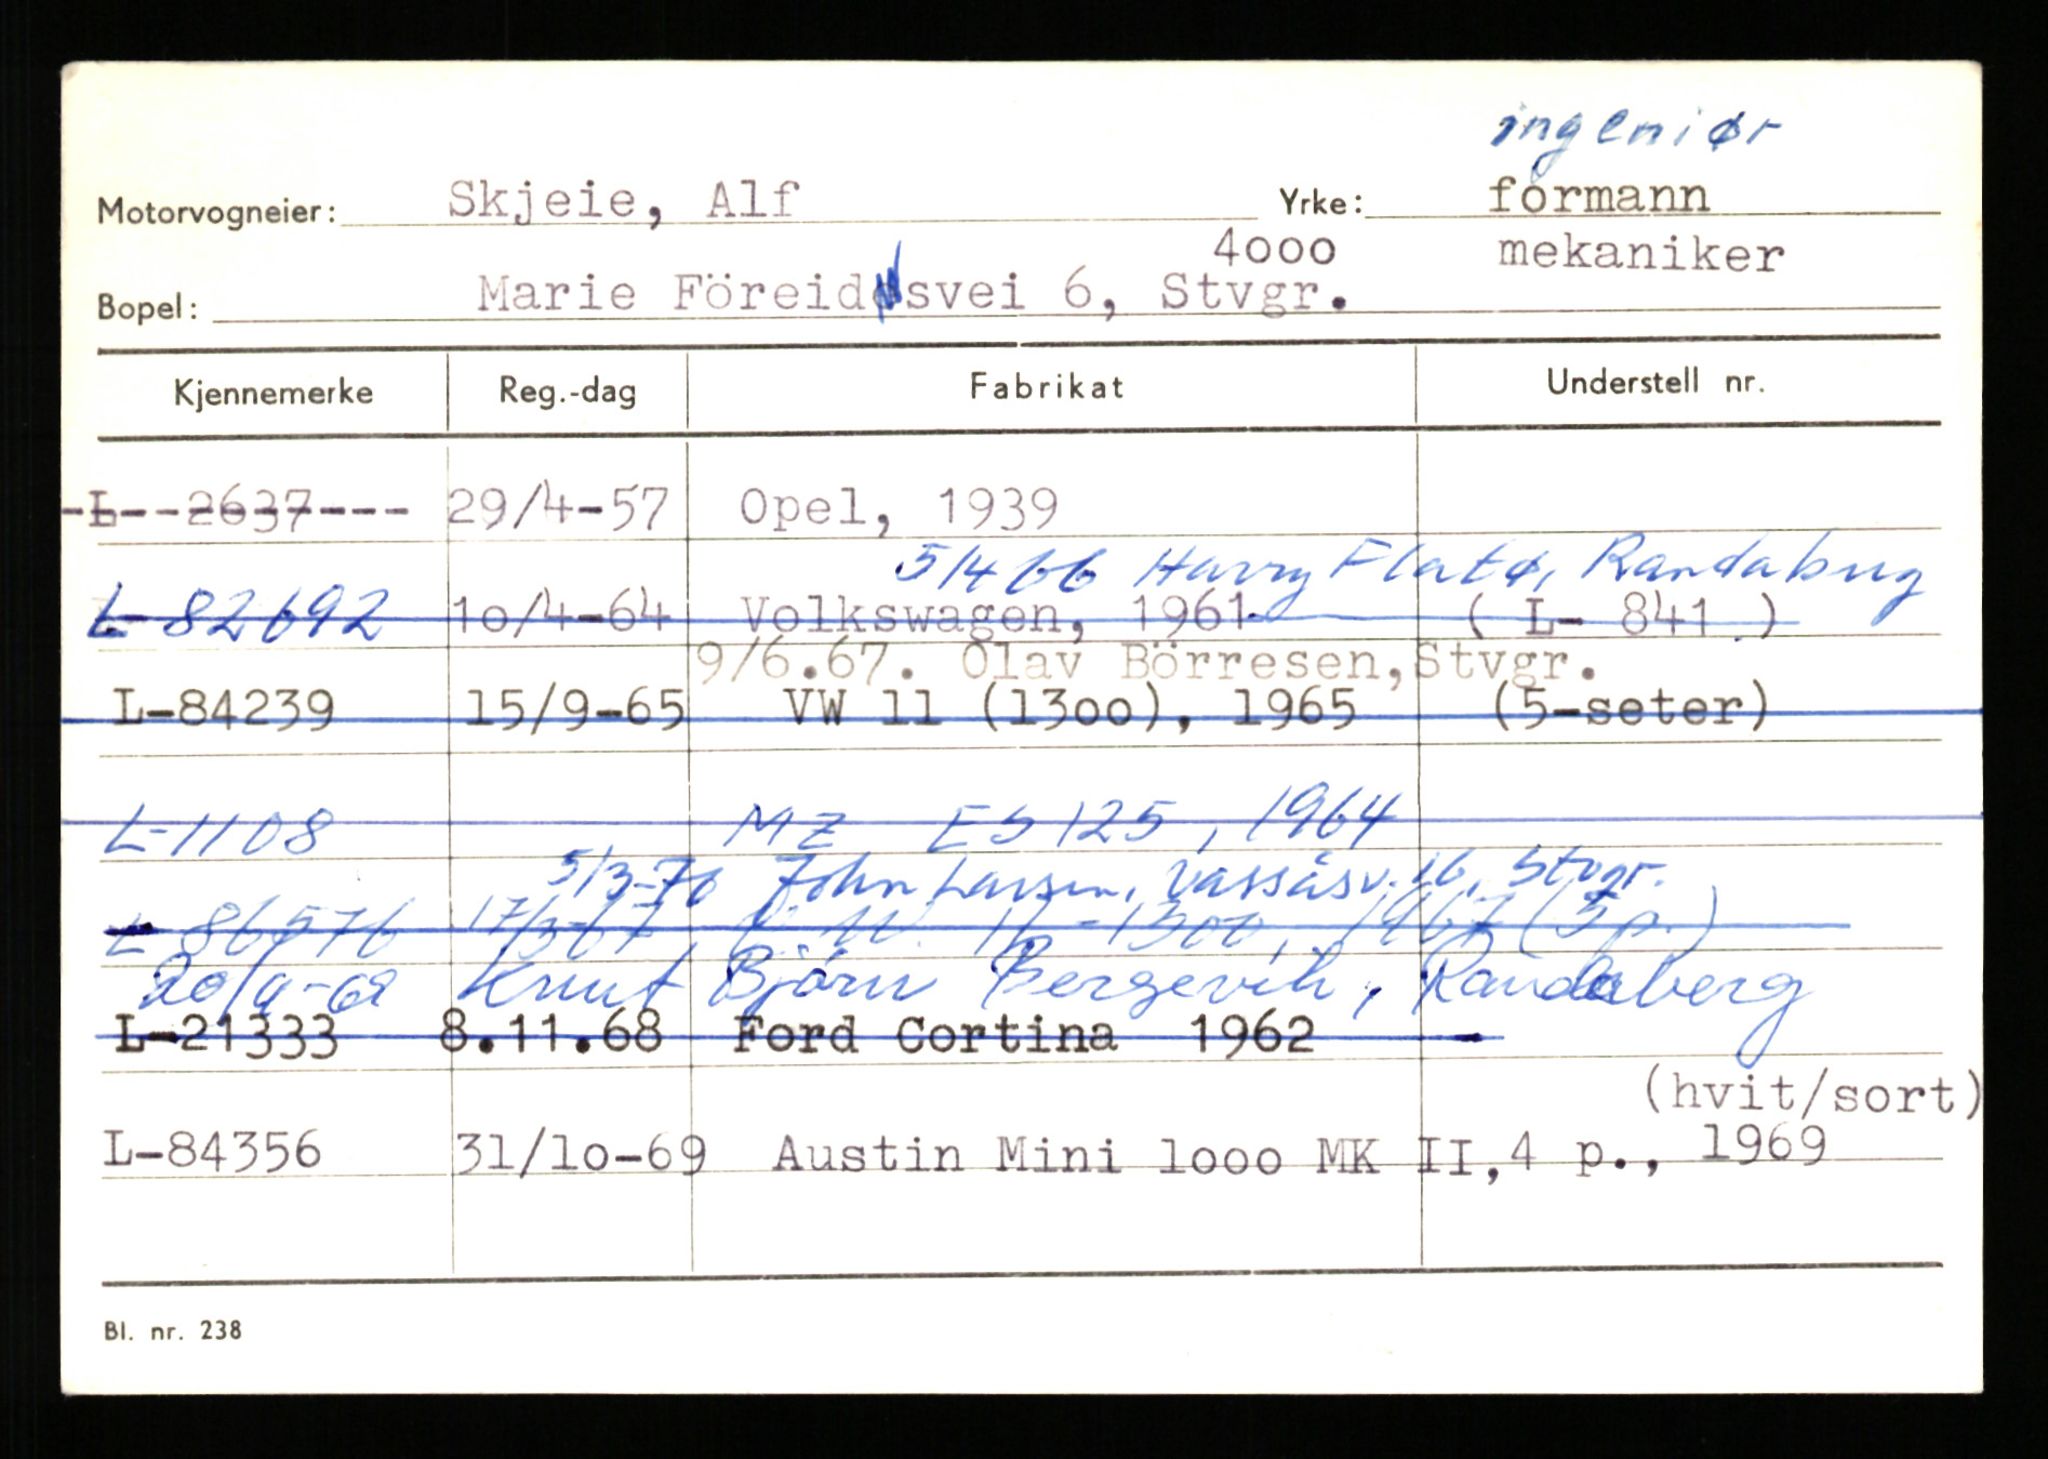 ingeniør
Motorvogneier: Skjeie, Alf Yrke: formann
4000 mekaniker
Bopel: Marie Föreidsvei 6, Stvgr.
Kjennemerke Reg.-dag Fabrikat Understell nr.
L--2637--- 29/4-57 Opel, 1939
5/4 66 Harry Flatø, Randaberg
L-82692 10/4-64 Volkswagen, 1961 ( L- 841 )
9/6.67. Olav Börresen, Stvgr.
L-84239 15/9-65 VW 11 (1300), 1965 (5-seter)
L-1108 MZ ES 125, 1964
5/3-70 John Larsen, Vassåsv. 16, Stvgr.
L-86576 17/3-67 V W 11-1300, 1967 (5 p.)
20/9-69 Knut Björn Bergevik, Randaberg
L-21333 8.11.68 Ford Cortina 1962
(hvit/sort)
L-84356 31/10-69 Austin Mini 1000 MK II, 4 p., 1969
Bl. nr. 238